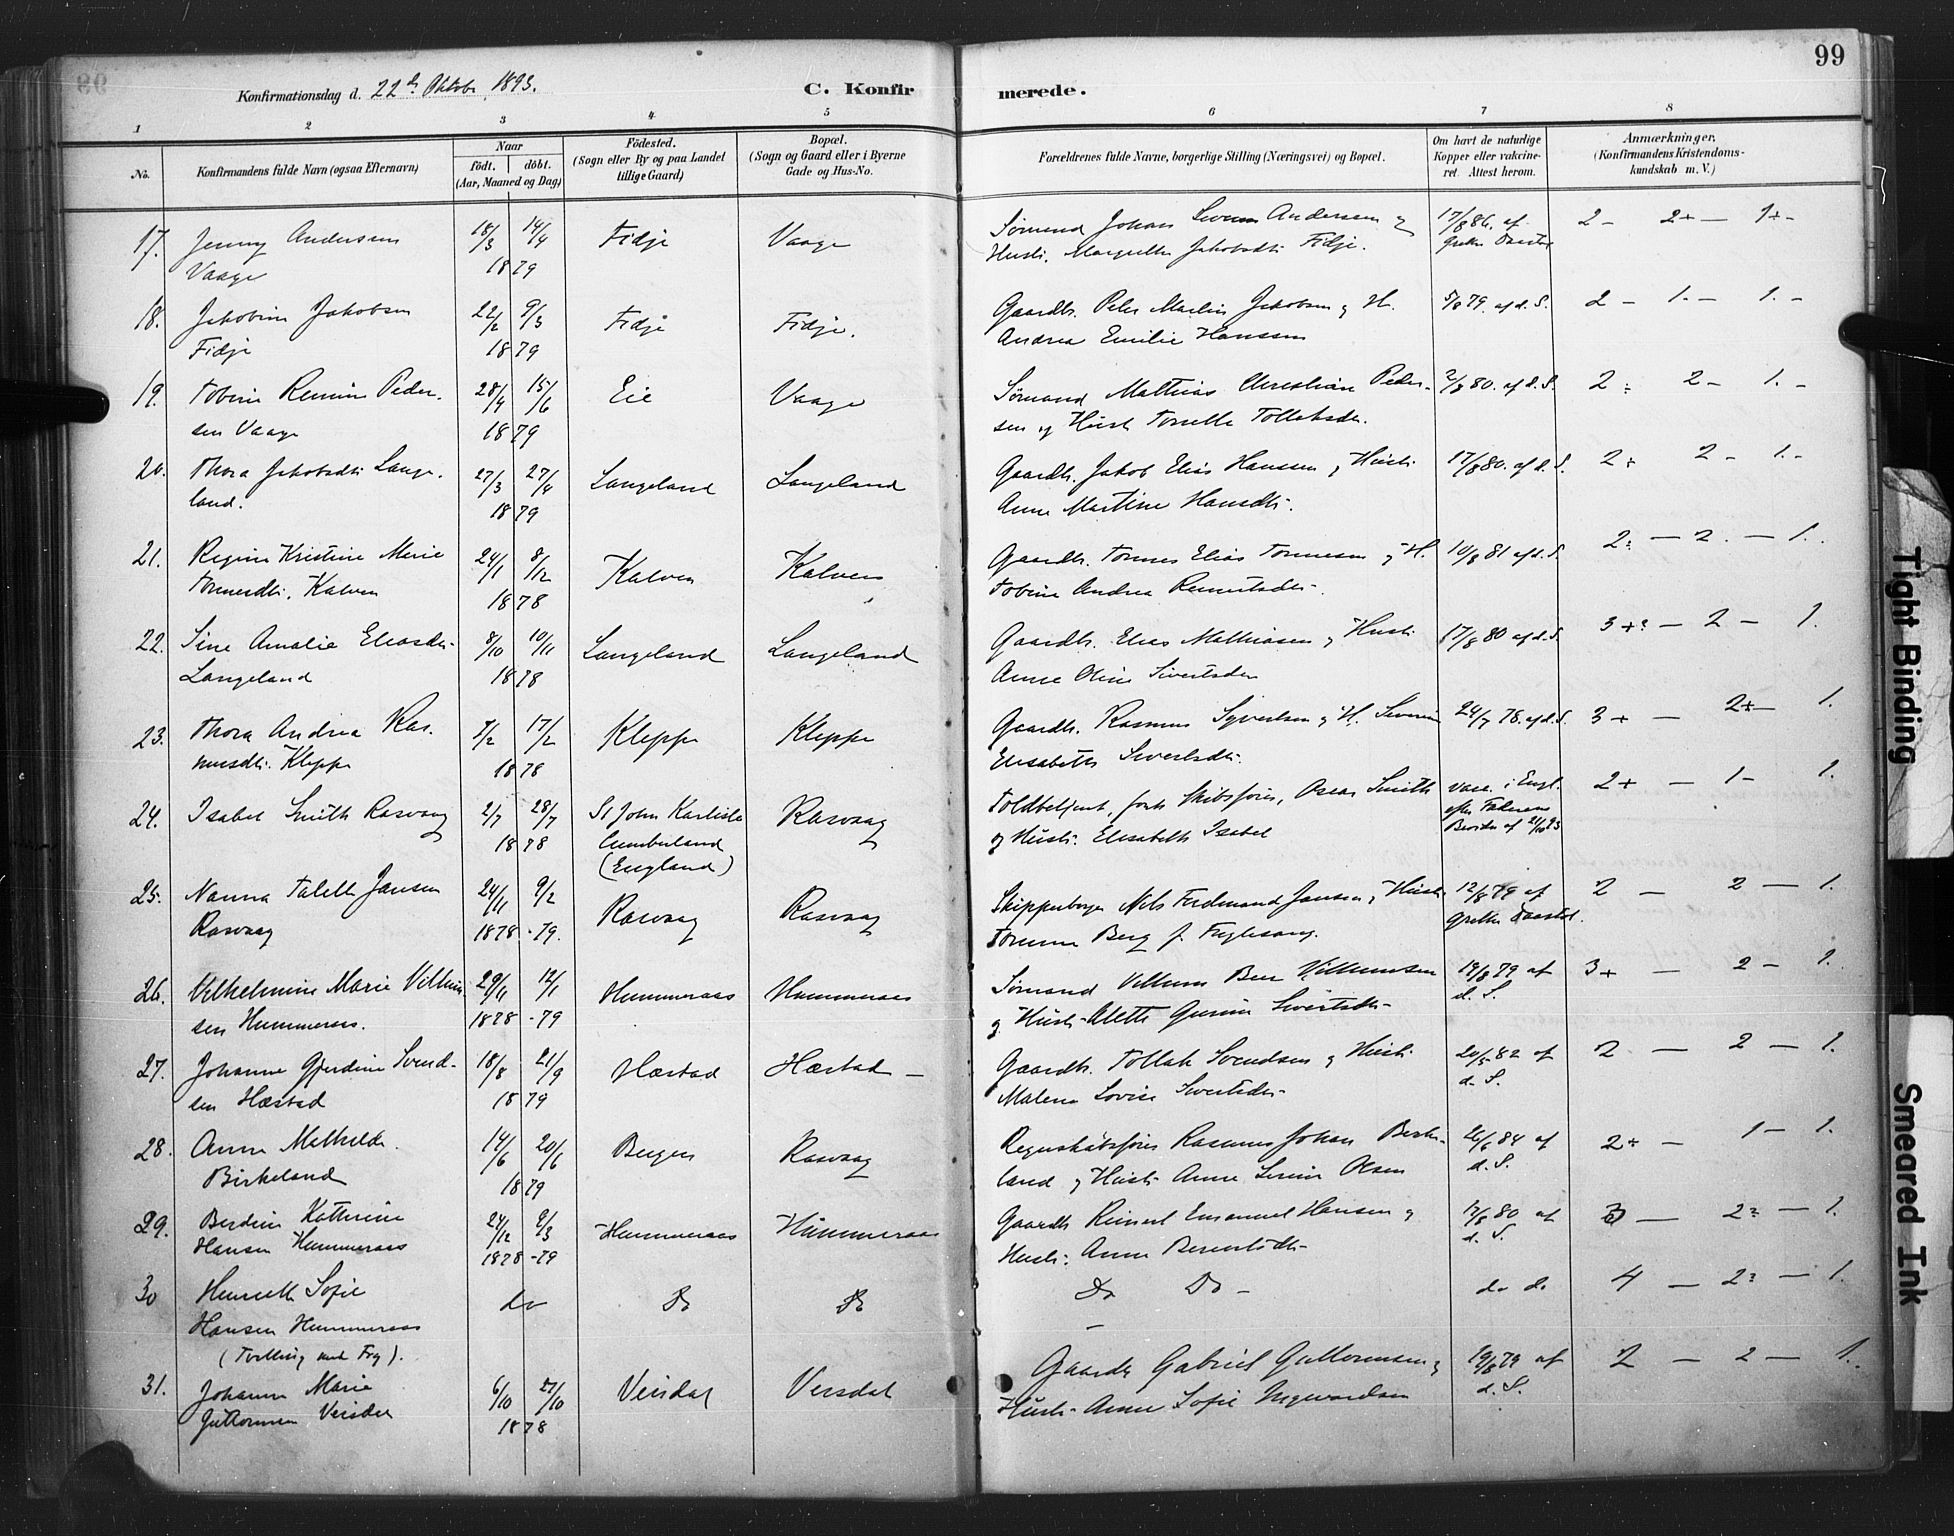 99
Konfirmationsdag d. 22de Oktober 1893.
C. Konfirmerede.
1 2 3 4 5 6 7 8
No.
Konfirmandens fulde Navn (ogsaa Efternavn)
Naar
født. døbt.
(Aar, Maaned og Dag)
Fødested.
(Sogn eller By og paa Landet
tillige Gaard)
Bopæl.
(Sogn og Gaard eller i Byerne
Gade og Hus-No.
Forældrenes fulde Navne, borgerlige Stilling (Næringsvei) og Bopæl.
Om havt de naturlige
Kopper eller vakcine-
ret. Attest herom.
Anmærkninger,
(Konfirmandens Kristendoms-
kundskab m. V.)
17. Jenny Andersen 18/3 14/4 Fidje Vaage Sømand Johan Andersen og 17/8 86. af 2- 2+ — 1+-
Vaage 1879 Hustr. Margrethe Jakobsdtr Fidje.
18. Jakobine Jakobsen 22/2 9/3 Fidje Fidje. Gaardbr. Peter Martin Jakobsen og H. 5/8 79. af d. S. 2 - 1. - 1. -
Fidje 1879 Andrea Emilie Hanssen
19. Tobine Remine Peder- 28/4 15/6 Eie Vaage Sømand Mathias Christian Peder- 2/8 80. af d. S. 2 2 - 1. -
sen Vaage 1879 sen og Hustr Tollaksdtr.
20. Thora Jakobsdtr Lange- 27/3 27/4 Langeland Langeland Gaardbr. Jakob Elias Hanssen og Hustr. 17/8 80. af d. S. 2+ 2 - 1. -
land. 1879 Anne Martine Hansdtr.
21. Regine Kristine Marie 24/1 8/12 Kalven Kalven Gaardbr. Tønnes Elias Tønnesen og H. 10/8 81 af d. S. 2 — 2. — 1.
Tønnesdtr. Kalven 1878 Tobine Andrea
22. Sine Amalie Eliasdtr. 8/10 10/11 Langeland Langeland Gaardbr. Elias Mathiasen og Hustr. 17/8 80 af d. S. 3+ — 2 — 1.
Langeland 1878 Anne Oline Sivertsdtr
23. Thora Andrea Ras- 7/2 17/2 Kleppe Kleppe Gaardbr. Rasmus Syvertsen og H. Severine 24/7 78. af d. S. 3+ — 2+ — 1.
musdtr. Kleppe 1878 Elisabeth Sivertsdtr.
24. Isabel Smith Rasvaag 2/7 28/7 St John Karlisle Rasvaag Toldbetjent, forh. Skibsfører, Oscar Smith vacc. i Engl. 2+ — 1 - 1.
1878 Cumberland og Hustr. Elisabeth Isabel efter Faderens
(England) Bevidn af 21/10 93
25. Nanna Talette Jansen 24/11 9/2 Rasvaag Rasvaag Skipperborger Nils Ferdinand Jansen og Hustr. 12/8 79 af 2 — 2 — 1.
Rasvaag 1878 -79. Berg f. Fuglesang.
26. Vilhelmine Marie Vilhelm- 29/11 12/1 Hummeraas Hummeraas Sømand Vilhelm Vilhelmsen 19/8 79 af 3+ — 2 - 1.
sen Hummeraas. 1878 -79 og Hustr. Alette Gurine Sivertsdtr. d. S.
27. Johanne Gjerdine Svend- 18/8 21/9 Hæstad Hæstad Gaardbr. Tollak Svendsen og Hustr. 20/5 82 af 2 — 2 — 1.
sen Hæstad 1879 Malena Lovise Sivertsdtr. d. S.
28. Anna Mathilde 14/6 20/6 Bergen Rasvaag Regnskabsfører Rasmus Johan Birke- 26/6 84 af 2+ — 1 — 1.
Birkeland 1879 land og Hustr. Anne Serine Olsen d. S.
29. Berdine Kathrine 24/12 9/3 Hummeraas Hummeraas Gaardbr Reinert Emanuel Hansen og 12/8 80 af 3 — 2 — 1.
Hansen Hummeraas 1878 -79 Hustr. Anne Berentsdtr. d. S.
30 Henriette Sofie do Do Do Do Do - do do 4 — 2 — 1.
Hansen Hummeraas
(Tvilling med Frg).
31. Johanne Marie 6/10 27/10 Veisdal Veisdal Gaardbr Gabriel Guttormsen og 19/8 79 af 2 — 2 — 1.
Guttormsen Veisdal 1878 Hustr. Anne Sofie d. S.
Tight Binding
Smeared Ink